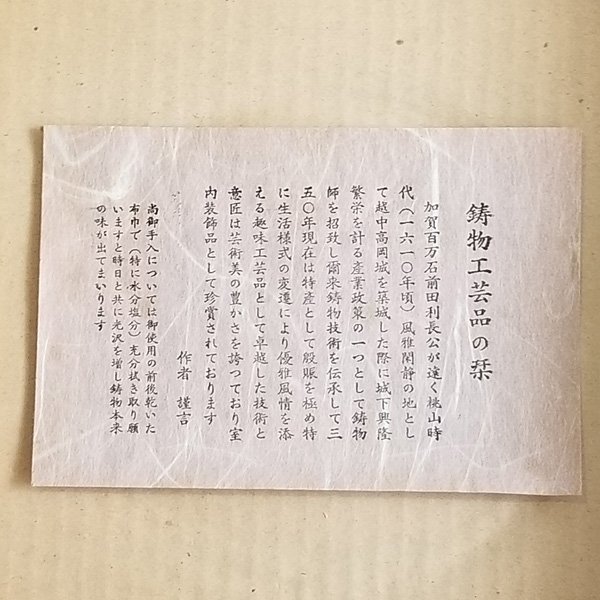 鋳物工芸品の栞
加賀百万石前田利長公が遠く桃山時
代（一六一〇年頃）風雅閑静の地とし
て越中高岡城を築城した際に城下興隆
繁栄を計る産業政策の一つとして鋳物
師を招致し爾来鋳物技術を伝承して三
五〇年現在は特産として殷賑を極め特
に生活様式の変遷により優雅風情を添
える趣味工芸品として卓越した技術と
意匠は芸術美の豊かさを誇つており室
内装飾品として珍賞されております
作者　謹言
尚御手入については御使用の前後乾いた
布巾で（特に水分塩分）充分拭き取り願
いますと時日と共に光沢を増し鋳物本来
の味が出てまいります